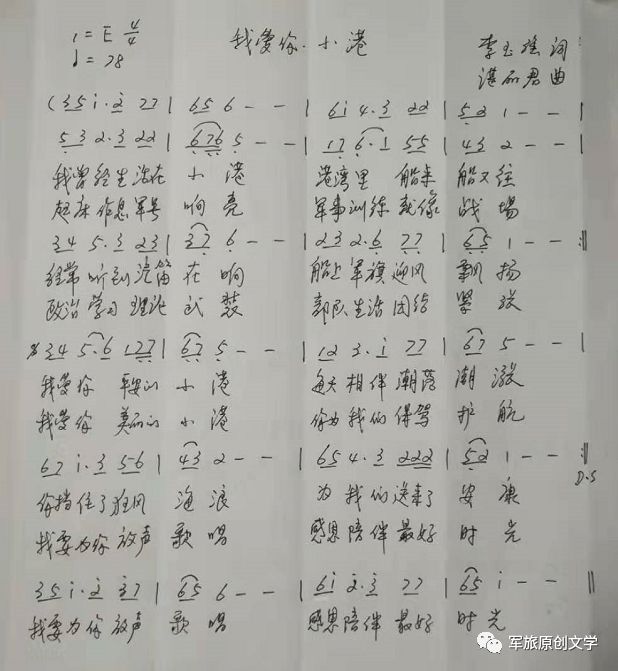 1=E 4/4 我爱你·小港 李玉瑶 词
♩=78 湛丽君 曲
(35 i·2 77 | 65 6 - - | 6i 4·3 22 | 52 1 - - |
53 2·3 22 | 676 5 - - | 17 6·1 55 | 43 2 - - |
我曾经生活在 小 港 港湾里 船来 船又往
起床作息军号 响 亮 军事训练就像 战 場
34 5·3 23 | 37 6 - - | 23 2·6 77 | 65 1 - - :||
经常听到汽笛 在 响 船上军旗迎风 飘 扬
政治学习理论 武 装 部队生活团结 紧 张
𝄋 34 5·6 177 | 67 5 - - | 12 3·i 77 | 67 5 - - |
我爱你 平安的 小 港 每天相伴潮落 潮 涨
我爱你 美丽的 小 港 你为我们保驾 护 航
67 i·3 56 | 43 2 - - | 65 4·3 222 | 52 1 - - :||
D.S
你挡住了狂风 海 浪 为我们送来了 安 康
我要为你放声 歌 唱 感恩陪伴最好 时 光
35 i·2 37 | 65 6 - - | 6i 2·3 77 | 65 i - - ||
我要为你放声 歌 唱 感恩陪伴最好 时 光
军旅原创文学